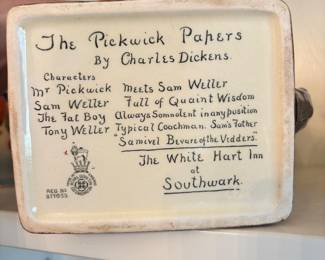 The Pickwick Papers
By Charles Dickens.
Characters
Mr Pickwick Meets Sam Weller
Sam Weller Full of Quaint Wisdom
The Fat Boy Always Somnolent in any position
Tony Weller Typical Coachman. Sam's Father
"Samivel Beware of the Vidders."
The White Hart Inn
at
Southwark.
REG NO